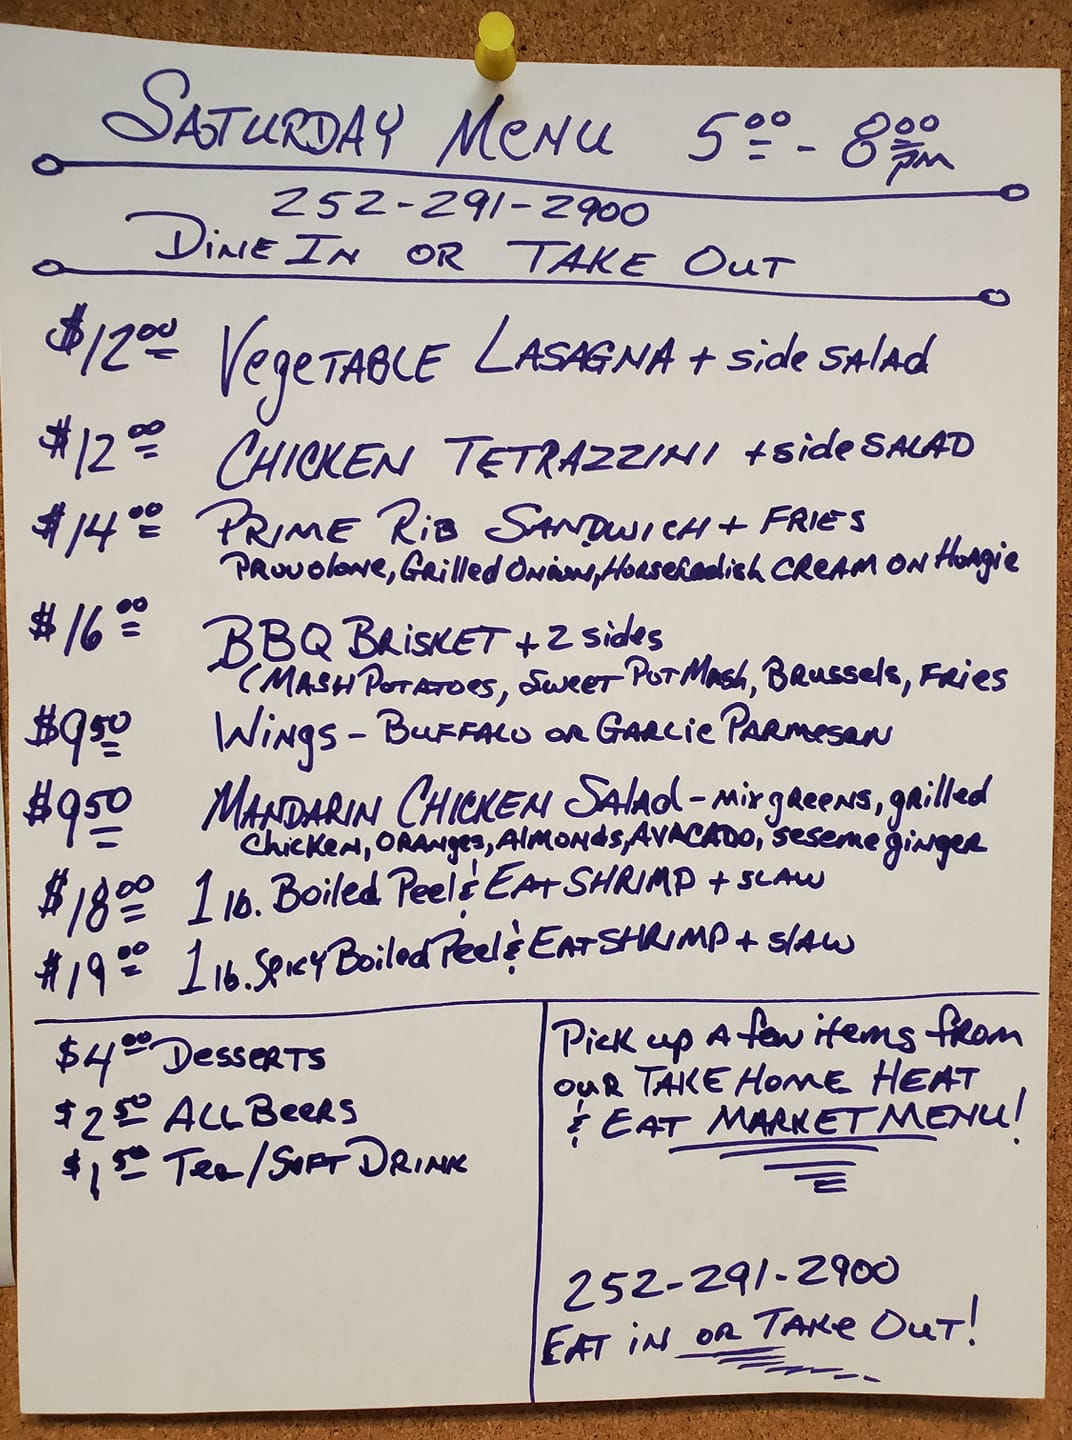 SATURDAY MENU 5:00 - 8:00 PM
252-291-2900
DINE IN OR TAKE OUT
$12.00 VegeTABLE LASAGNA + side SALAd
$12.00 CHICKEN TETRAZZINI + side SALAD
$14.00 PRIME RIB SANDWICH + FRIES
PROVOlONE, GRilled ONiON, HORSeRadish CREAM ON HOAgie
$16.00 BBQ BRISKET + 2 sides
(MASH POTATOES, SWEET POT MASh, BRussels, FRies
$9.50 WiNgS - BUFFALO OR GARLIC PARMESAN
$9.50 MANDARIN CHICKEN SAlAd - mix gReeNS, gRilled
ChicKeN, ORANges, AlMONds, AVACADO, seseme giNgeR
$18.00 1 lb. Boiled Peel & EAT SHRIMP + SLAW
$19.00 1 lb. SPiCY Boiled Peel & EAT SHRIMP + SlAW
$4.00 DesseRTS
$2.50 ALL BeeRS
$1.50 Tea/SOFT DRINK
Pick up A few items from
OUR TAKE HOME HEAT
& EAT MARKET MENU!
252-291-2900
EAT iN OR TAKe OUT!